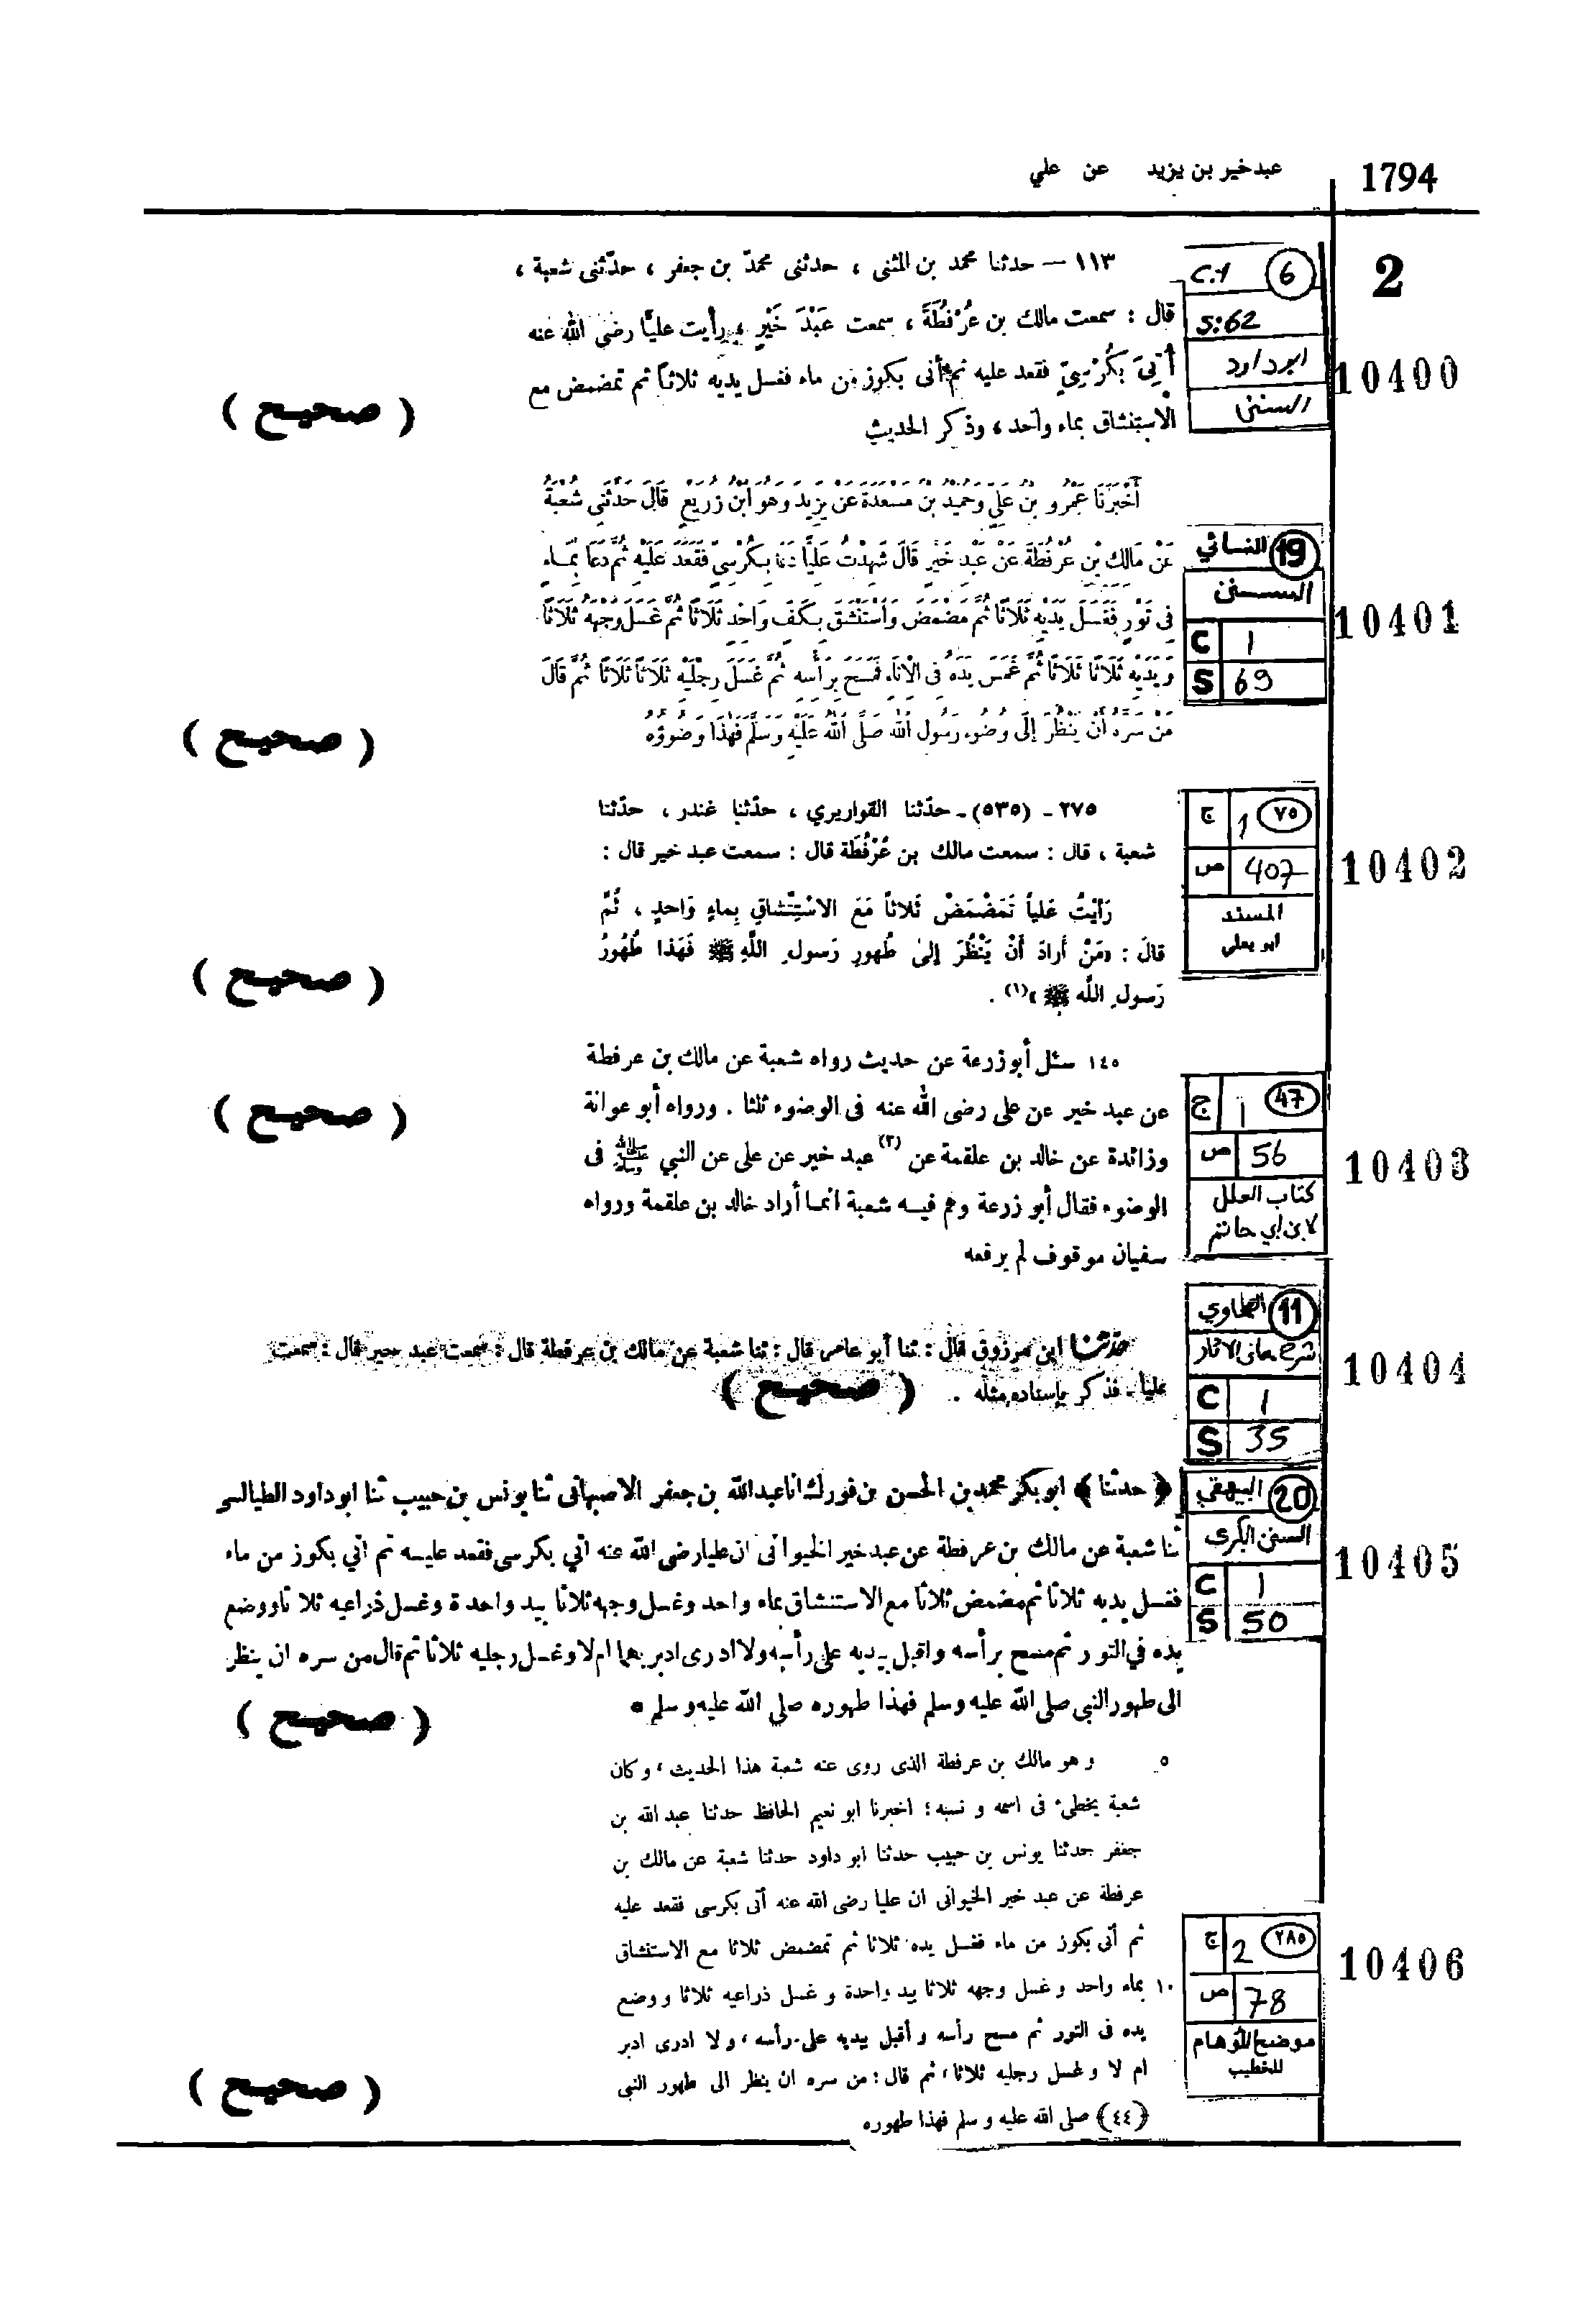 1794
عبد خير بن يزيد عن علي
2
6
C:1
S:62
ابو داود
السنن
10400
١١٣ — حدثنا محمد بن المثنى ، حدثنى محمدّ بن جعفر ، حدّثنى شعبة ،
قال : سمعت مالك بن عُرْفُطَةَ ، سمعت عَبْدَ خَيْرٍ ، رأيت عليًّا رضى الله عنه
أُتِىَ بِكُرْسِيّ فقعد عليه ثم أتى بكوز من ماء فغسل يديه ثلاثاً ثم تمضمض مع
الأستِنشاق بماء واحد ، وذكر الحديث
( صحيح )
19 النسائي
السنن
C 1
S 69
10401
أَخْبَرَنَا عَمْرُو بْنُ عَلِيٍّ وَحُمَيْدُ بْنُ مَسْعَدَةَ عَنْ يَزِيدَ وَهُوَ ابْنُ زُرَيْعٍ قَالَ حَدَّثَنِى شُعْبَةُ
عَنْ مَالِكِ بْنِ عُرْفُطَةَ عَنْ عَبْدِ خَيْرٍ قَالَ شَهِدْتُ عَلِيًّا دَعَا بِكُرْسِىٍّ فَقَعَدَ عَلَيْهِ ثُمَّ دَعَا بِمَاءٍ
فِى تَوْرٍ فَغَسَلَ يَدَيْهِ ثَلَاثًا ثُمَّ مَضْمَضَ وَاسْتَنْشَقَ بِكَفٍّ وَاحِدٍ ثَلَاثًا ثُمَّ غَسَلَ وَجْهَهُ ثَلَاثًا
وَيَدَيْهِ ثَلَاثًا ثَلَاثًا ثُمَّ غَمَسَ يَدَهُ فِى الْإِنَاءِ فَمَسَحَ بِرَأْسِهِ ثُمَّ غَسَلَ رِجْلَيْهِ ثَلَاثًا ثَلَاثًا ثُمَّ قَالَ
مَنْ سَرَّهُ أَنْ يَنْظُرَ إِلَى وُضُوءِ رَسُولِ اللهِ صَلَّى اللهُ عَلَيْهِ وَسَلَّمَ فَهٰذَا وُضُوؤُهُ
( صحيح )
٧٥ 1 ج
407 ص
المسند
ابو يعلى
10402
٢٧٥ - (٥٣٥) - حدّثنا القواريري ، حدّثنا غندر ، حدّثنا
شعبة ، قال : سمعت مالك بن عُرْفُطَة قال : سمعت عبد خير قال :
رَأَيْتُ عَلياً تَمَضْمَضَ ثَلاثاً مَعَ الاسْتِنْشاقِ بِماءٍ وَاحدٍ ، ثُمَّ
قالَ : «مَنْ أرادَ أَنْ يَنْظُرَ إلىٰ طُهورِ رَسولِ اللَّهِ ﷺ فَهَذا طُهُورُ
رَسولِ اللَّه ﷺ »(١) .
( صحيح )
47 1 ج
56 ص
كتاب العلل
لابن ابي حاتم
10403
١٤٥ سئل أبوزرعة عن حديث رواه شعبة عن مالك بن عرفطة
عن عبد خير عن على رضى الله عنه فى الوضوء ثلثا . ورواه أبو عوانة
وزائدة عن خالد بن علقمة عن (٣) عبد خير عن على عن النبي ﷺ فى
الوضوء فقال أبو زرعة وهم فيه شعبة أنما أراد خالد بن علقمة ورواه
سفيان موقوف لم يرفعه
( صحيح )
11 الطحاوي
شرح معاني الاثار
C 1
S 35
10404
حدّثنا ابن مرزوق قال : ثنا أبو عامر قال : ثنا شعبة عن مالك بن عرفطة قال : سمعت عبد خير قال : سمعت
عليا ، فذكر بإسناده مثله .
( صحيح )
20 البيهقي
السنن الكبرى
C 1
S 50
10405
﴿ حدثنا ﴾ ابو بكر محمد بن الحسن بن فورك انا عبد الله بن جعفر الاصبهانى ثنا يونس بن حبيب ثنا ابو داود الطيالسى
ثنا شعبة عن مالك بن عرفطة عن عبد خير الخيوانى ان عليا رضى الله عنه أتي بكرسى فقعد عليه ثم اتي بكوز من ماء
فغسل يديه ثلاثا ثم مضمض ثلاثا مع الاستنشاق بماء واحد وغسل وجهه ثلاثا بيد واحدة وغسل ذراعيه ثلاثا ووضع
يده في التور ثم مسح برأسه واقبل بيديه على رأسه ولا ادرى ادبر بهما ام لا وغسل رجليه ثلاثا ثم قال من سره ان ينظر
الى طهور النبي صلى الله عليه وسلم فهذا طهوره صلى الله عليه وسلم ٥
( صحيح )
٢٨٥ 2 ج
78 ص
موضح الأوهام
للخطيب
10406
٥ و هو مالك بن عرفطة الذى روى عنه شعبة هذا الحديث ، و كان
شعبة يخطىء فى اسمه و نسبه ؛ اخبرنا ابو نعيم الحافظ حدثنا عبد الله بن
جعفر حدثنا يونس بن حبيب حدثنا ابو داود حدثنا شعبة عن مالك بن
عرفطة عن عبد خير الخيوانى ان عليا رضى الله عنه أتى بكرسى فقعد عليه
ثم أتى بكوز من ماء فغسل يده ثلاثا ثم تمضمض ثلاثا مع الاستنشاق
١٠ بماء واحد و غسل وجهه ثلاثا بيد واحدة و غسل ذراعيه ثلاثا و وضع
يده فى التور ثم مسح رأسه و أقبل بيديه على رأسه ، و لا ادرى ادبر
ام لا و غسل رجليه ثلاثا ، ثم قال : من سره ان ينظر الى طهور النبى
(٤٤) صلى الله عليه و سلم فهذا طهوره
( صحيح )